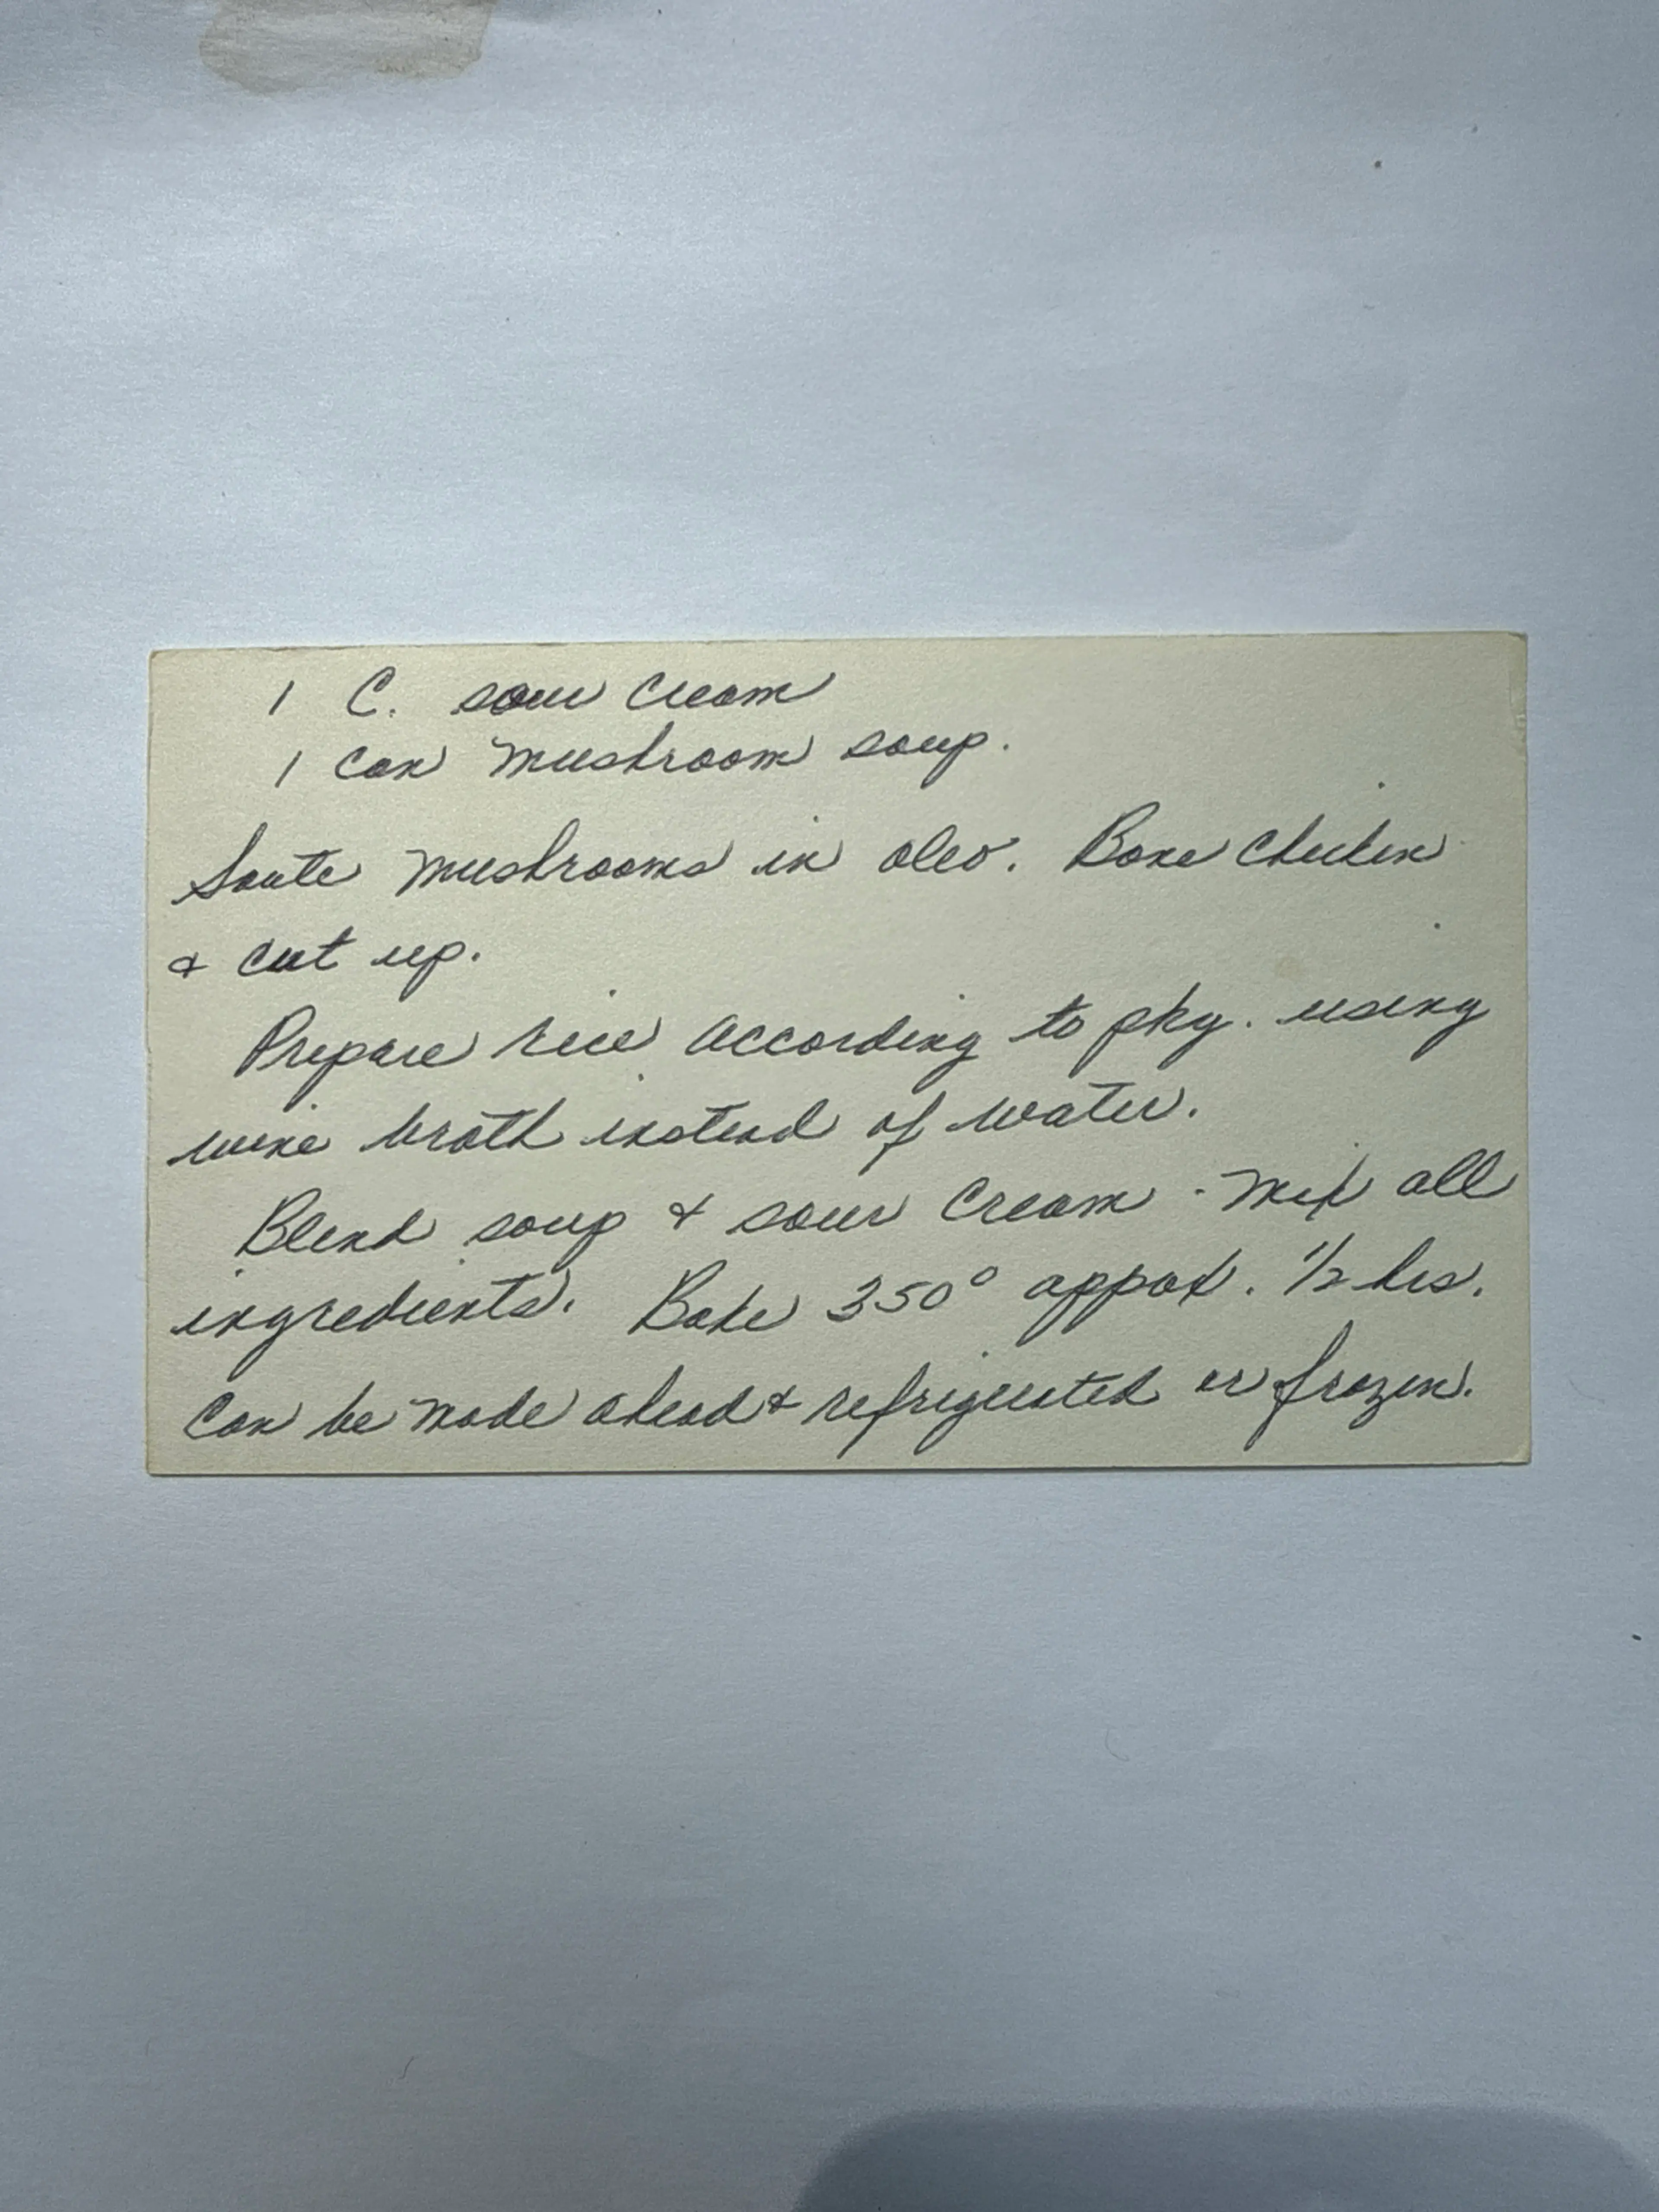 1 C. sour cream
1 can mushroom soup.
Saute mushrooms in oleo. Bone chicken
& cut up.
Prepare rice according to pkg. using
wine broth instead of water.
Blend soup & sour cream - mix all
ingredients. Bake 350° appox. 1/2 hrs.
Can be made ahead & refrigerated or frozen.